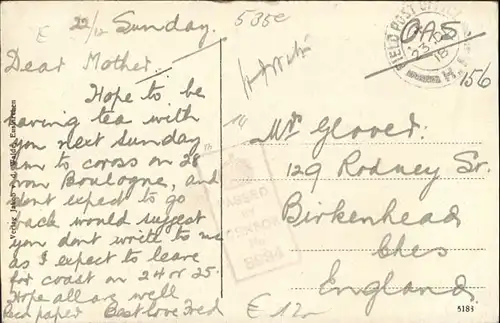 22/12 Sunday.
Dear Mother.
Hope to be
having tea with
you next Sunday
am to corss on 28th
from Boulogne, and
dont expect to go
back would suggest
you dont write to me
as I expect to leave
for coast on 24 or 25.
Hope all are well
Recd paper Best love Fred
E
535e
OAS
FIELD POST OFFICE
23 DE
18
H
156
Mr Glover.
129 Rodney St.
Birkenhead
Ches
England
PASSED
BY
CENSOR
No
E 12.
5183